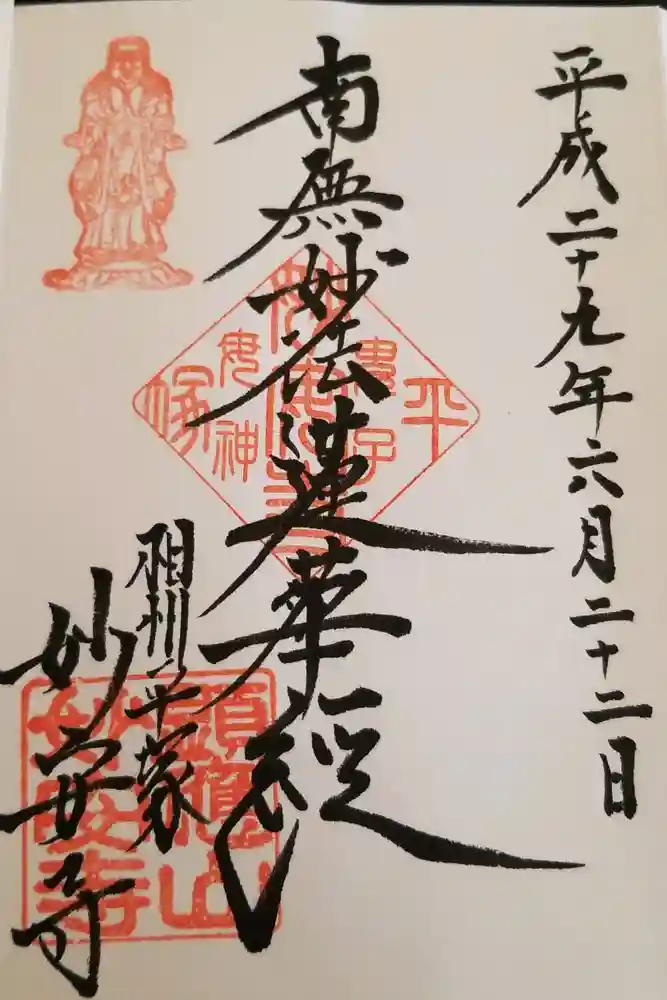 平成二十九年六月二十二日
南無妙法蓮華経
相州平塚
妙安寺
平
鬼神
妙安寺